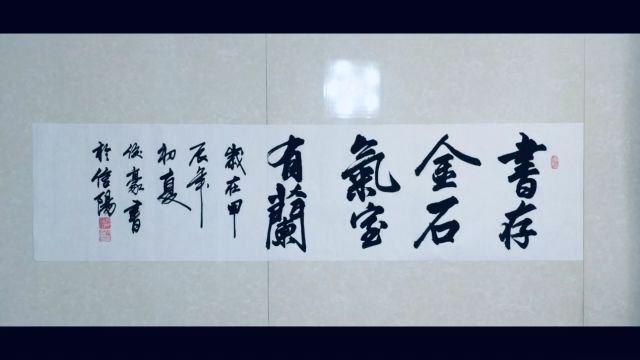 書存
金石
氣室
有蘭
歲在甲
辰年
初夏
俊豪書
於信陽